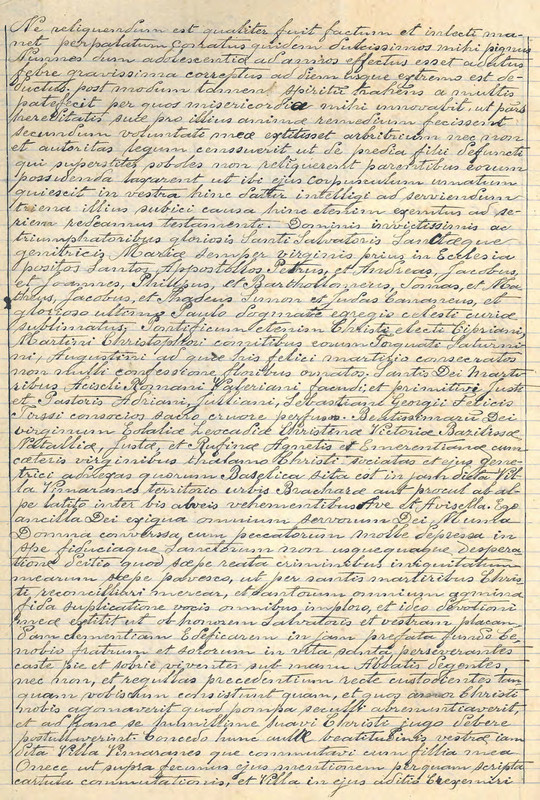 Ne reliquendum est qualiter fuit factum et intecti ma-
net perpatatum conatus quidem dulcissimos mihi pignus
Nunnes dum adolescentia ad annos effectus esset aditus
febre gravissima correptus ad diem usque extremo est de-
ductus, post modum tamen spiritu trahens a multis
patefecit per quos misericordia mihi innovabit ut pars
hereditatis suæ pro illius animæ remedium fecissent
secundum voluntate meæ extitisset arbitrium nec non
et autoritas legum censsuerit ut de predia filii defuncti
qui superstites soboles non reliquerent parentibus eorum
possidenda laxarent ut ibi ejus corpusculum umatum
quiescit in vestra hinc datur intelligi ad serviendum
triena illius subici causa hinc etenim exemtus ad se-
riem redeamus testamenti. Dominis invictissimis ac
triumphatoribus gloriosis Santi Salvatoris Sanctæque
genitricis Mariæ semper virginis prius in Ecclesia
positos Santos Appostollos Petrus, et Andreas, Jacobus,
et Joannes, Phillipus, et Barthollomeus, Tomas, et Ma-
theus, Jacobus, et Thadeus Simon et Judas Cananeus, et
glorioso ultimo Paulo dogmate egregio celesti curiæ
sublimatus, Pontificum etenim Christi electi Cipriani,
Martini Christofori comitibus eorum Torquati Saturni
ni, Augustini ad quæ his felici martirio consecratos
non nulli confessione floribus ornatos, Santis Dei Marti
ribus Aciscli Romani Veseriani facudi, et primitivi Juste
et Pastoris Adriani, Julliani, Sebastiani Georgii Felicis
Tirssi consocios sacro cruore perfusos. Beatissemaru Dei
virginum Eolaliæ Leocadiæ Christina Victoriæ Bazilissæ
Nathalliæ, Justæ, et Rufinæ Agnetis et Emerentianæ cum
cæteris virginibus thalamo Christi sociatas et ejus geni-
trici adregas quorum Baselica sita est in jam dicta Vil-
la Vimaranes territorio urbis Bracharæ aut procul ab al-
pe latito inter bis alveis vehementibus Ave et Avisella. Ego
ancilla Dei exigua omnium servorum Dei Muma
Domna conversa, cum peccatorum molle depressa in
spe fiduciaque Sanctorum non usquequaque despera-
tione deitio quod sæpe reata criminibus iniquitatum
mearum sæpe pavesco, ut per santis martiribus Chris
ti reconcilliari merear, et santorum omnium agmina
fida suplicatione vocis omnibus imploro, et ideo devotioni
meæ extitit ut ob honorem Salvatoris et vestram placan-
dam clementiam Edeficarem in jam prefata fundo Ce-
nobio fratrum et sororum in vita santa, perseverantes
caste pie et sovriè viventes sub manu Abbatis degentes,
nec non, et regullas precedentium recte custodientes tan
quam vobiscum consistunt quam, et quos amor Christi
nobis agonaverit quod pompa seculli abrenuntiaverit,
et ad hanc se humillime suavi Christi jugo debere
postullaverint. Concedo nunc aullæ beatitudinis vestræ iam
dita Villa Vimaranes que commutavi cum fillia mea
Onece ut supta fecimus ejus mentionem per quam scripta
cartula commutationis, et Villa in ejus aditis Creximiri